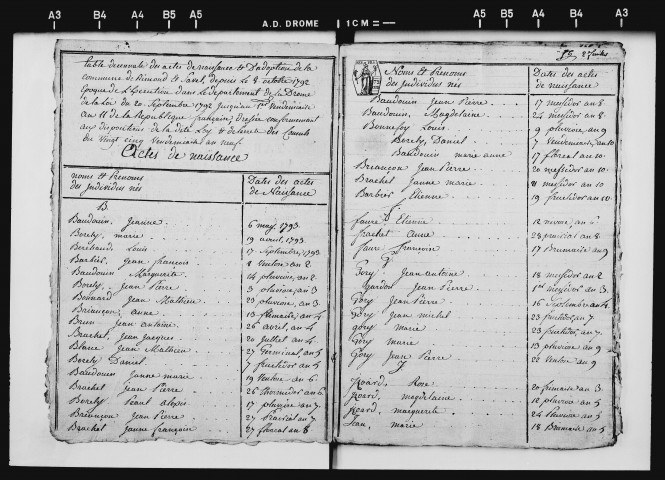 A3 B4 A4 B5 A5 A.D. DROME 1 CM A5 B5 A4 B4 A3
Table décennale des actes de naissance & D'adoption de la
commune de Rimond & Savel, depuis le 8 octobre 1792
Epoque de l'Execution dans le departement de la Drome
de la Loi du 20 Septembre 1792 jusqu'au 1er Vendemiaire
an 11 de la Republique française; dressée conformement
aux dispositions de la dite Loy & de l'arreté des Consuls
du vingt cinq Vendemiaire an neuf
Actes de naissance
noms & Prenoms des Individus nés
Dates des actes de Naissance
B
Baudouin, Jeanne 6 may, 1793
Borely, marie 19 avril, 1793
Louis 17 Septembre, 1793
Barbier, Jean françois 8 Ventose an 2
Baudouin Marguerite 14 pluviose, an 2
Borely, Jean Pierre 3 pluviose, an 3
Bonnard Jean Mathieu 23 pluviose, an 3
Briançon, anne 13 frimaire, an 4
Brun Jean antoine 26 avril, an 4
Brachet, Jean Jacques 20 Juillet an 4
Blanc Jean Mathieu 27 Germinal, an 5
Borely Daniel 7 fructidor an 5
Baudouin Janne marie 19 Ventose an 6
Brachet Jean Pierre 26 thermidor an 6
Borely alexis 17 pluviose an 7
Briançon Jean Pierre 27 Prairial an 7
Brachet Janne françoise 27 floreal an 8
2 feuilet
Noms & Prenoms des Individus nés
Dates des actes de naissance
Baudouin Jean Pierre 17 messidor an 8
Baudouin, Magdelaine 24 messidor an 8
Bonnefoy Louis 9 pluviose, an 9
Borely, Daniel 7 an 10
Baudouin marie anne 17 floreal an 10
Briançon Jean Pierre 20 messidor an 10
Brachet Janne marie 8 messidor an 10
Barbier Etienne 19 fructidor an 10
f
faure Etienne 12 nivose, an 2
frachet Anne 28 prairial an 8
faure françoise 17 Brumaire an 9
G
Gory Jean antoine 18 messidor an 2
Guardon Jean Pierre 1er messidor an 3
Gory Jean Pierre 16 Septembre an 4
Gory Jean michel 23 fructidor, an 7
Gory marie 23 fructidor, an 7
Gory marie 13 pluviose an 9
Gory Jean Pierre 22 ventose an 9
J
Rose 20 frimaire an 3
magdelaine 12 pluviose an 5
marguerite 24 Pluviose an 5
Jean, marie 18 Brumaire an 5